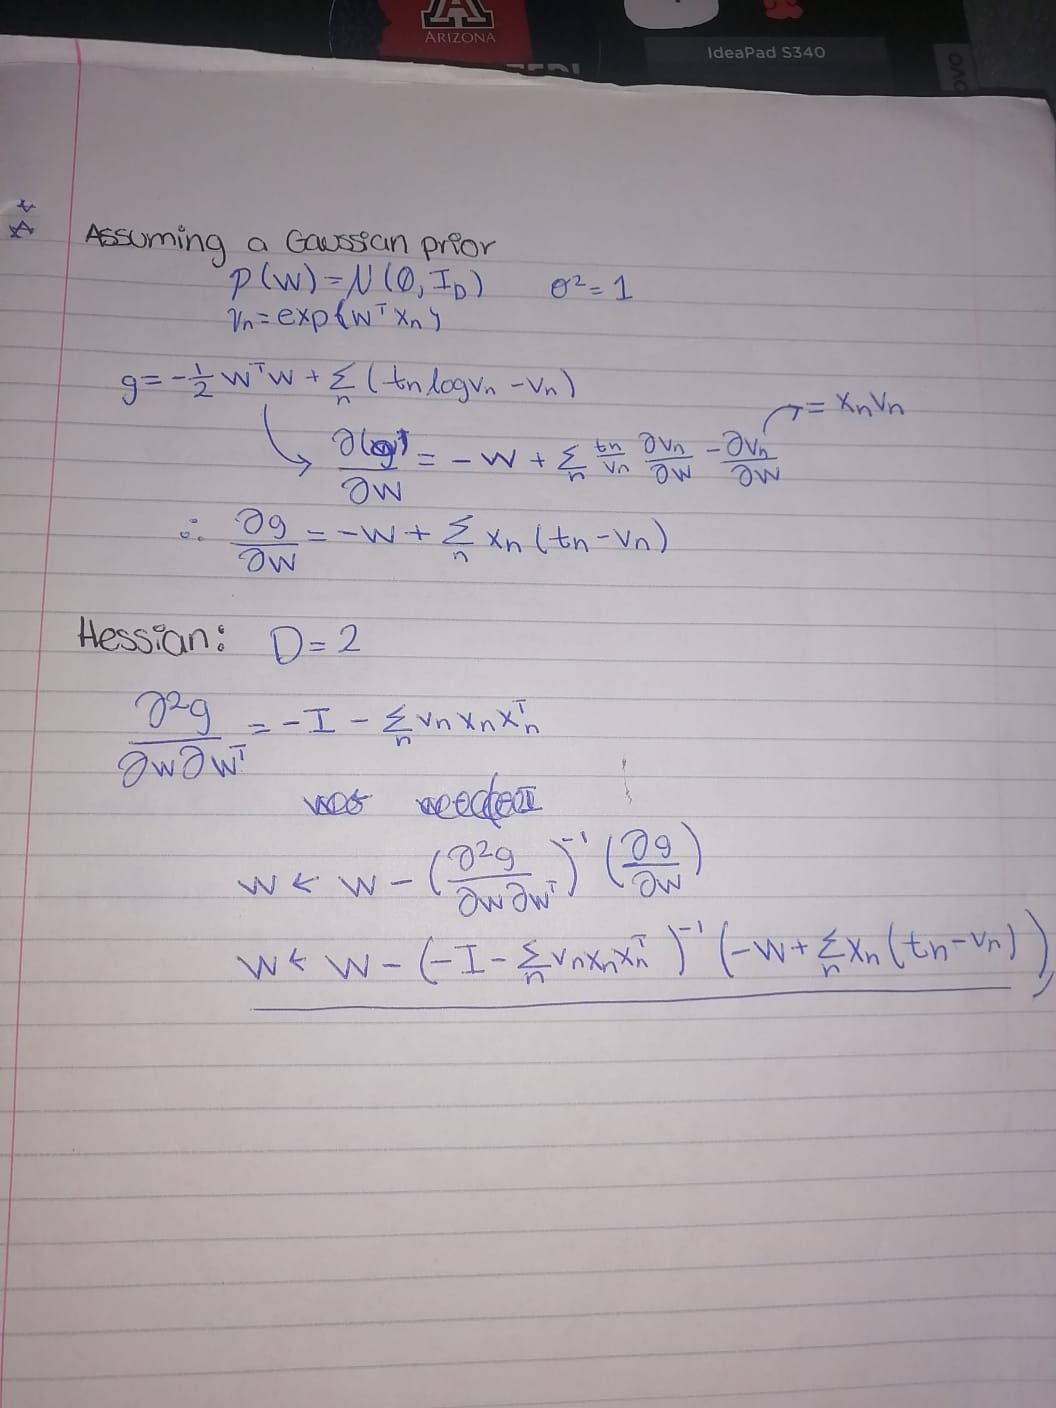 ARIZONA
IdeaPad S340
Assuming a Gaussian prior
p(w) = N(0, I_D)    σ² = 1
v_n = exp{wᵀx_n}
g = -½ wᵀw + Σ_n (t_n log v_n - v_n)
= x_n v_n
∂(g)/∂w = -w + Σ_n t_n/v_n ∂v_n/∂w - ∂v_n/∂w
∴ ∂g/∂w = -w + Σ_n x_n (t_n - v_n)
Hessian: D = 2
∂²g/∂w∂wᵀ = -I - Σ_n v_n x_n x_nᵀ
w ← w - (∂²g/∂w∂wᵀ)⁻¹ (∂g/∂w)
w ← w - (-I - Σ_n v_n x_n x_nᵀ)⁻¹ (-w + Σ_n x_n (t_n - v_n))